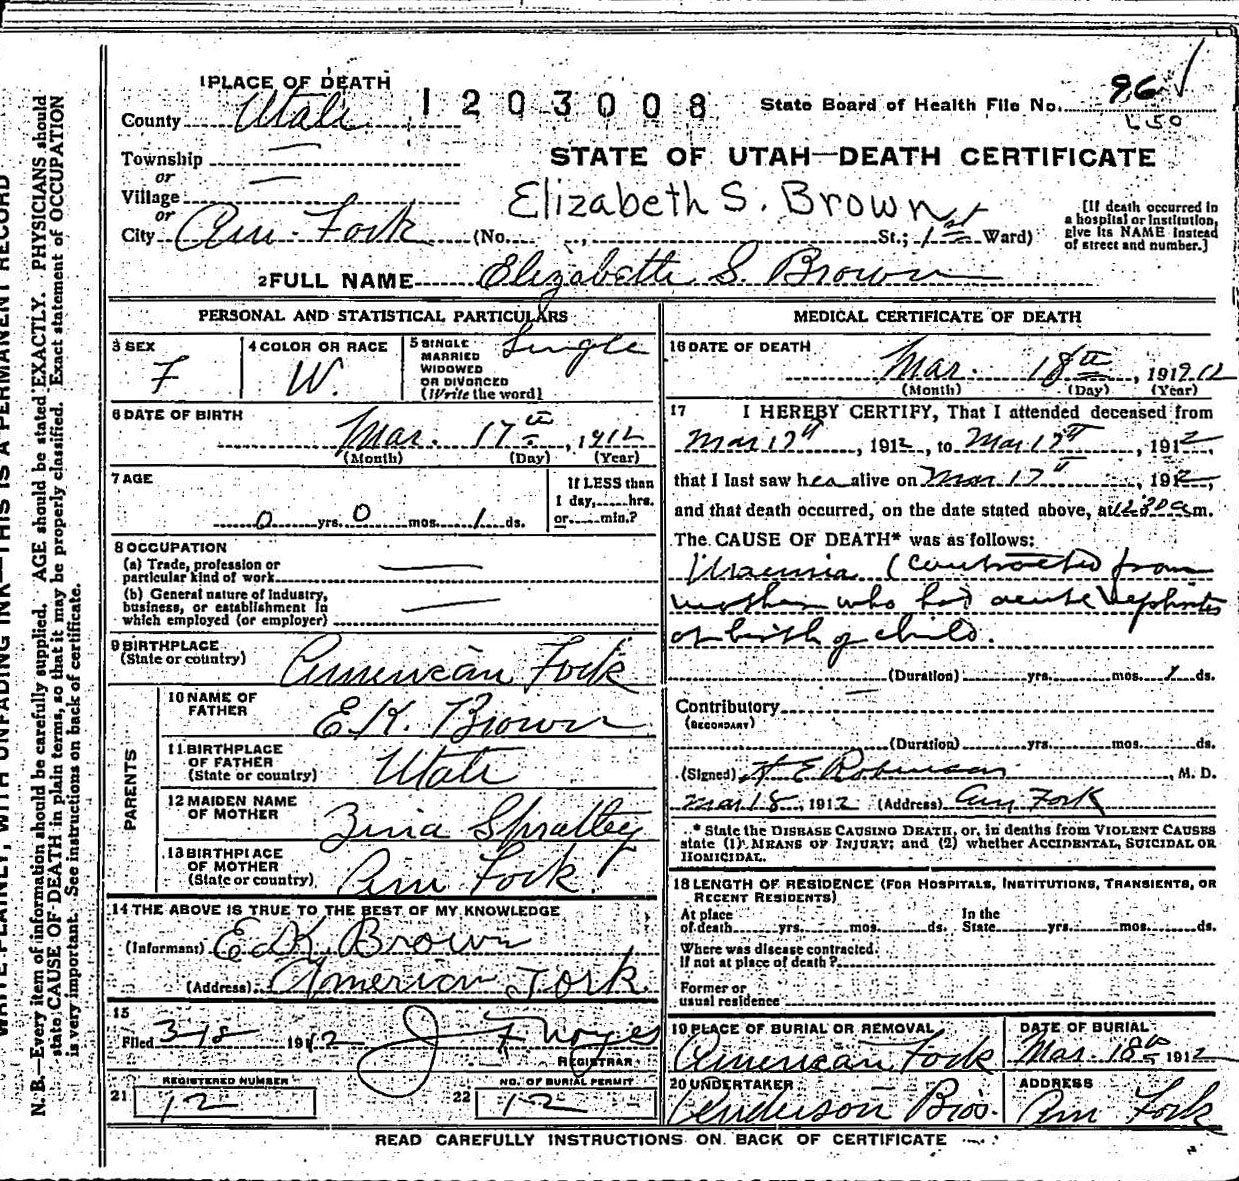 1 PLACE OF DEATH
1203008
State Board of Health File No. 96
L50
County Utah
STATE OF UTAH—DEATH CERTIFICATE
Township —
or
Village —
or
Elizabeth S. Brown
City Am. Fork (No. , St.; 1st Ward)
[If death occurred in
a hospital or institution,
give its NAME instead
of street and number.]
2 FULL NAME Elizabeth S. Brown
PERSONAL AND STATISTICAL PARTICULARS
3 SEX
F
4 COLOR OR RACE
W.
5 SINGLE
MARRIED
WIDOWED
OR DIVORCED
(Write the word)
Single
6 DATE OF BIRTH
Mar. 17th, 1912
(Month) (Day) (Year)
7 AGE
0 yrs. 0 mos. 1 ds.
If LESS than
1 day, hrs.
or min.?
8 OCCUPATION
(a) Trade, profession or
particular kind of work —
(b) General nature of industry,
business, or establishment in
which employed (or employer) —
9 BIRTHPLACE
(State or country) American Fork
PARENTS
10 NAME OF
FATHER E.K. Brown
11 BIRTHPLACE
OF FATHER
(State or country) Utah
12 MAIDEN NAME
OF MOTHER Zina Spratley
13 BIRTHPLACE
OF MOTHER
(State or country) Am Fork.
14 THE ABOVE IS TRUE TO THE BEST OF MY KNOWLEDGE
(Informant) E.K. Brown
(Address) American Fork.
15
Filed 3/18 1912 J F Noyes
REGISTRAR
REGISTERED NUMBER
21 12
NO. OF BURIAL PERMIT
22 12
MEDICAL CERTIFICATE OF DEATH
16 DATE OF DEATH
Mar. 18th, 1912 12
(Month) (Day) (Year)
17 I HEREBY CERTIFY, That I attended deceased from
Mar 17th, 1912, to Mar 17th, 1912
that I last saw her alive on Mar 17th, 1912,
and that death occurred, on the date stated above, at 12.30 a.m.
The CAUSE OF DEATH* was as follows:
Uraemia (contracted from
mother who had acute Nephritis
at birth of child.
(Duration) yrs. mos. 1 ds.
Contributory —
(SECONDARY)
(Duration) yrs. mos. ds.
(Signed) Robinson, M. D.
Mar 18, 1912 (Address) Am Fork
* State the DISEASE CAUSING DEATH, or, in deaths from VIOLENT CAUSES
state (1) MEANS OF INJURY; and (2) whether ACCIDENTAL, SUICIDAL OR
HOMICIDAL.
18 LENGTH OF RESIDENCE (FOR HOSPITALS, INSTITUTIONS, TRANSIENTS, OR
RECENT RESIDENTS)
At place
of death yrs. mos. ds.
In the
State yrs. mos. ds.
Where was disease contracted.
If not at place of death?
Former or
usual residence
19 PLACE OF BURIAL OR REMOVAL
American Fork
DATE OF BURIAL
Mar. 18th 1912
20 UNDERTAKER
Anderson Bros.
ADDRESS
Am Fork
READ CAREFULLY INSTRUCTIONS ON BACK OF CERTIFICATE
WRITE PLAINLY, WITH UNFADING INK—THIS IS A PERMANENT RECORD
N. B.—Every item of information should be carefully supplied. AGE should be stated EXACTLY. PHYSICIANS should
state CAUSE OF DEATH in plain terms, so that it may be properly classified. Exact statement of OCCUPATION
is very important. See instructions on back of certificate.